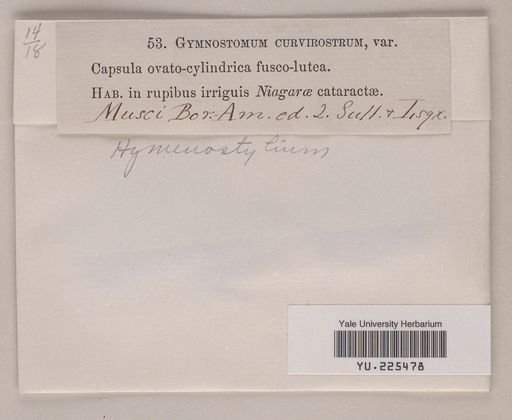 14
18
53. GYMNOSTOMUM CURVIROSTRUM, var.
Capsula ovato-cylindrica fusco-lutea.
HAB. in rupibus irriguis Niagaræ cataractæ.
Musci Bor.-Am. ed. 2. Sull. & Lsqx.
Hymenostylium
Yale University Herbarium
YU.225478